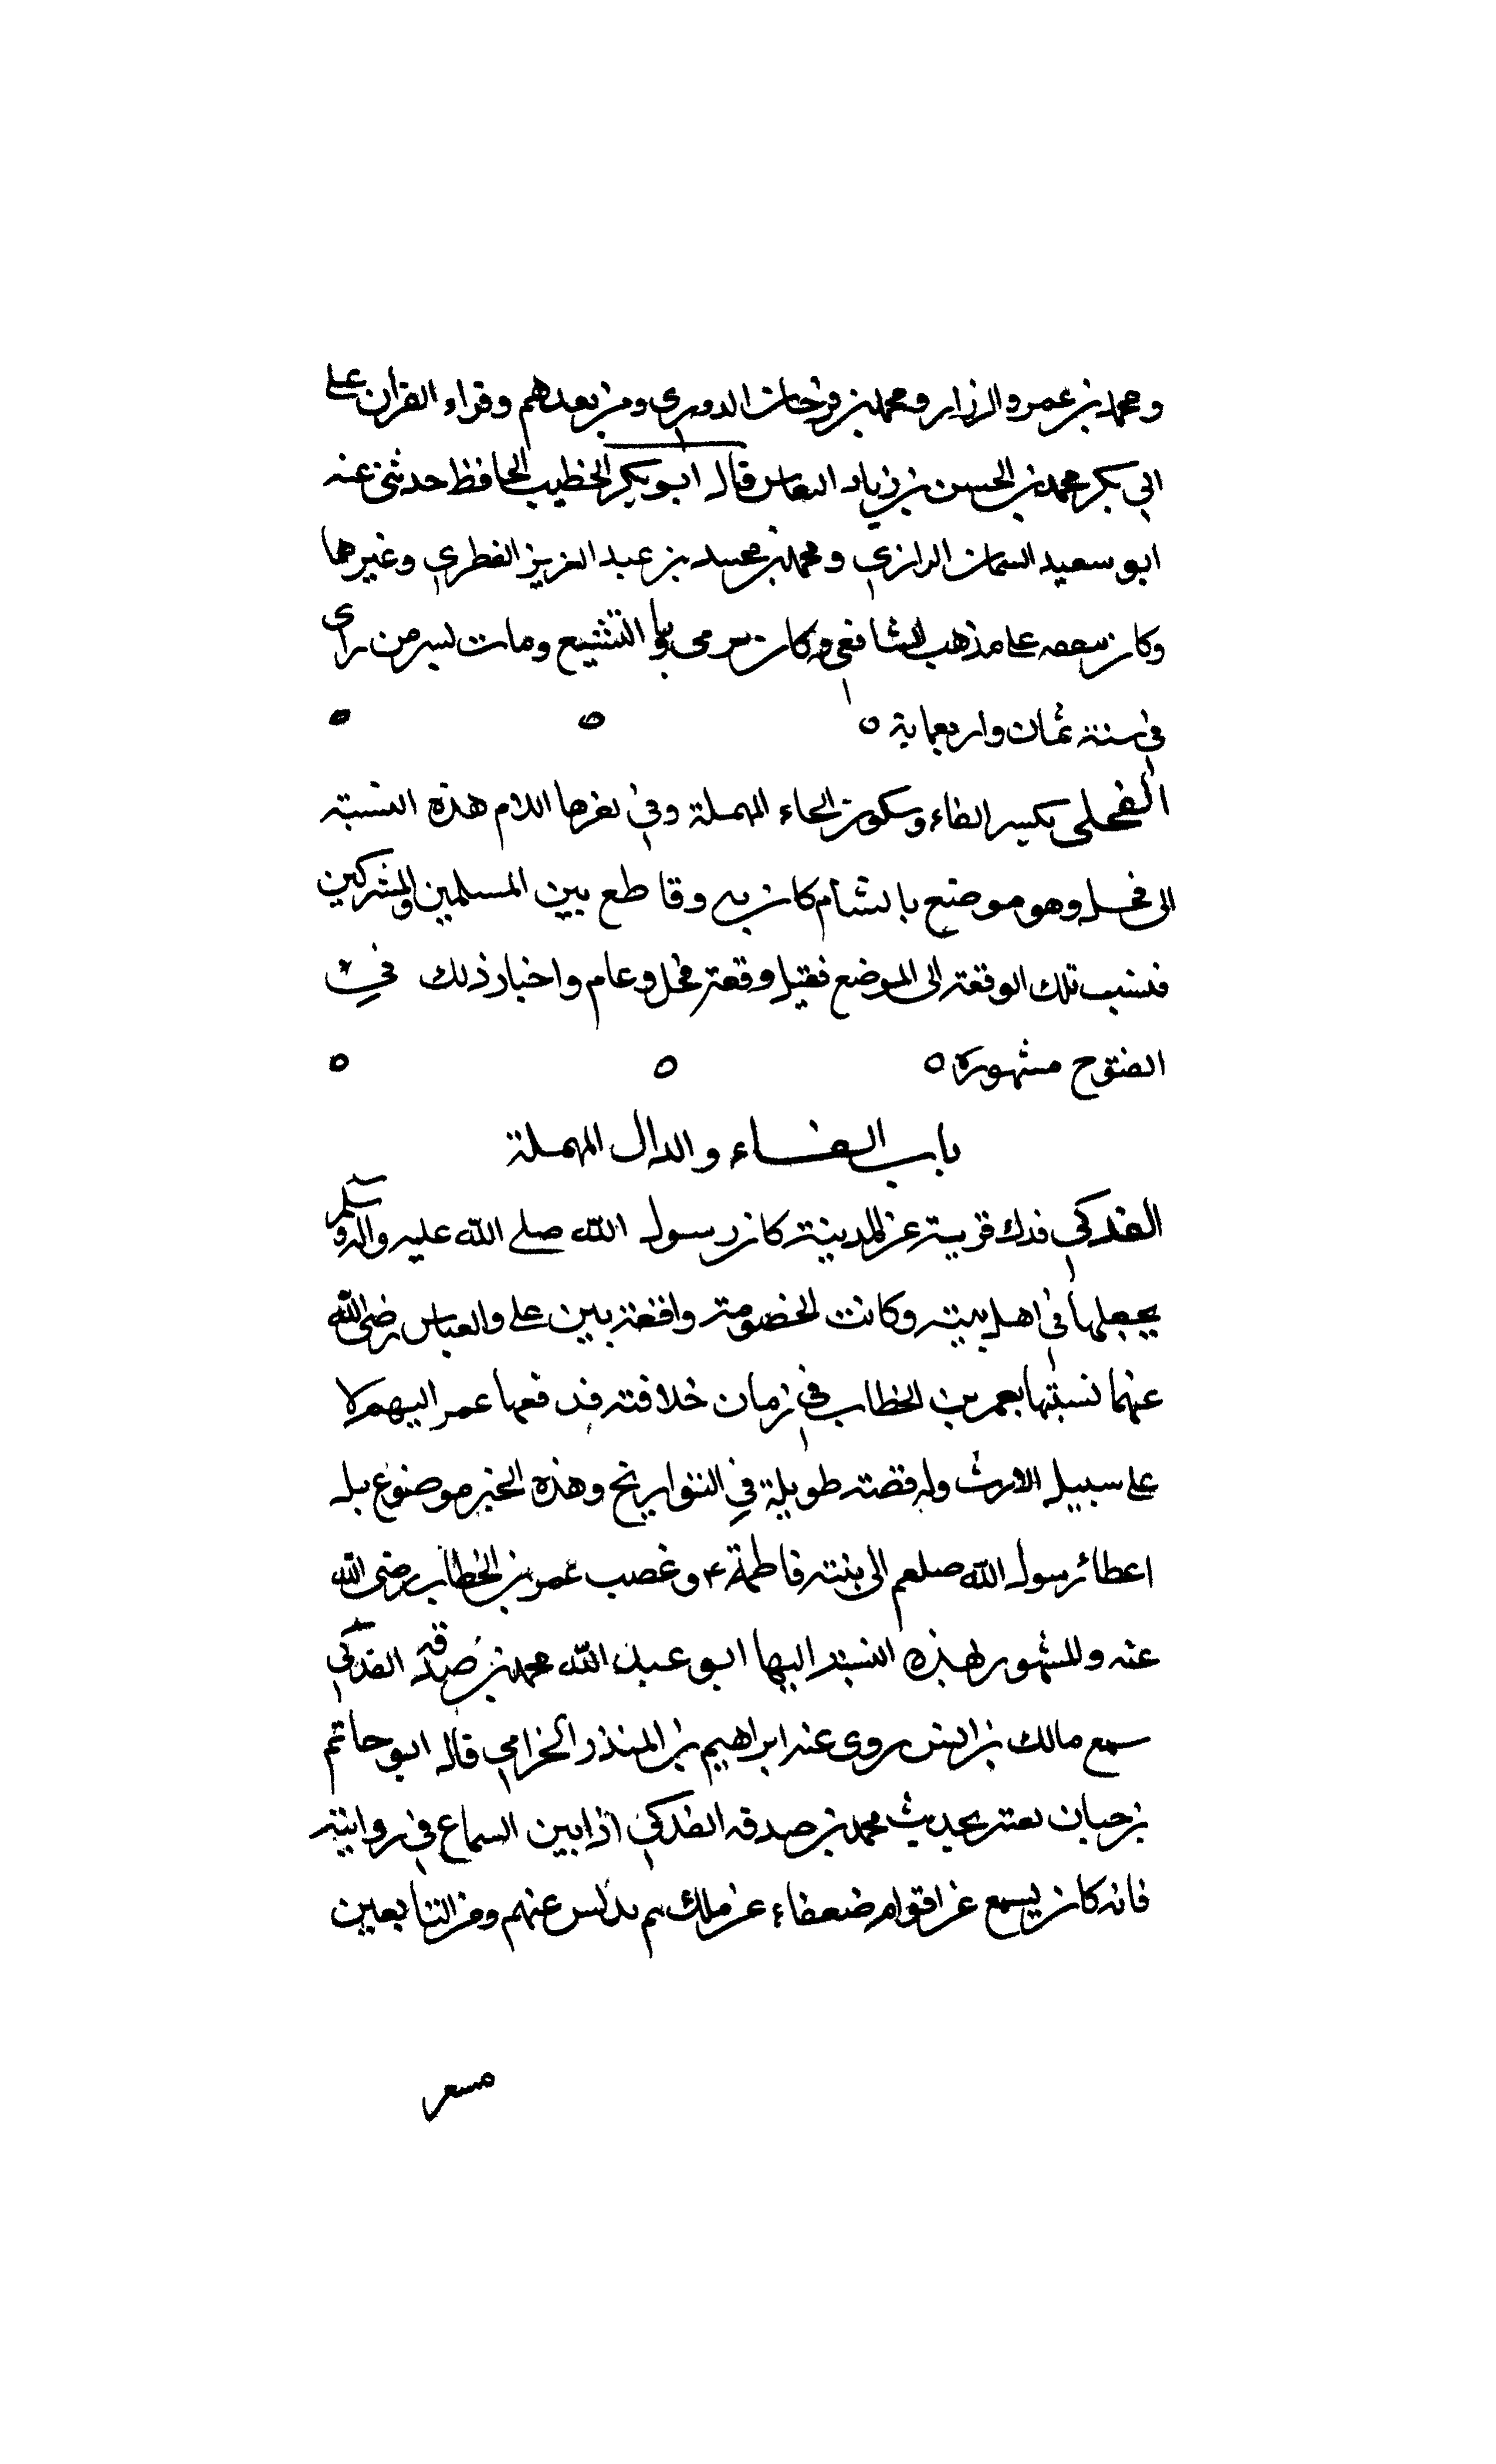 ومحمد بن عمرو الرزاز ومحمد بن فرخان الدوري ومن بعدهم وقراء القران على
ابي بكر محمد بن الحسن بن زياد النقاش قال ابو بكر الخطيب الحافظ حدثني عنه
ابو سعيد السمان الرازي ومحمد بن محمد بن عبد العزيز القطري وغيرهما
وكان يتفقه على مذهب الشافعي وكان يرمى بالتشيع ومات بسر من راى
في سنة ثمان واربعماية ه ه ه
الفحلي بكسر الفاء وسكون الحاء المهملة وفي اخرها اللام هذه النسبة
الى فحل وهو موضع بالشام كان به وقاطع بين المسلمين والمشركين
فنسب تلك الوقعة الى الموضع فقيل وقعة فحل وعام واخبار ذلك في
الفتوح مشهورة ه ه ه
باب الفاء والدال المهملة
الفدكي فدك قرية عن المدينة كان رسول الله صلى الله عليه واله وسلم
يجعلها في اهل بيته وكانت الخصومة واقعة بين على والعباس رضى الله
عنهما نسبتها بعمر بن الخطاب في زمان خلافته فدفعها عمر اليهم لا
على سبيل الارث وله قصة طويلة في التواريخ وهذه الخبر موضوع بل
اعطا رسول الله صلعم الى بنته فاطمة ع وغصب عمر بن الخطاب رضى الله
عنه والمشهور لهذه النسبة اليها ابو عبد الله محمد بن صدقة الفدكي
سمع مالك بن انس روى عنه ابراهيم بن المنذر الخزامي قال ابو حاتم
بن حبان يعتبر بحديث محمد بن صدقه الفدكي اذا بين السماع في روايته
فانه كان يسمع عن اقوام ضعفاء عن ملك ثم يدلس عنهم ومن التابعين
مسعر